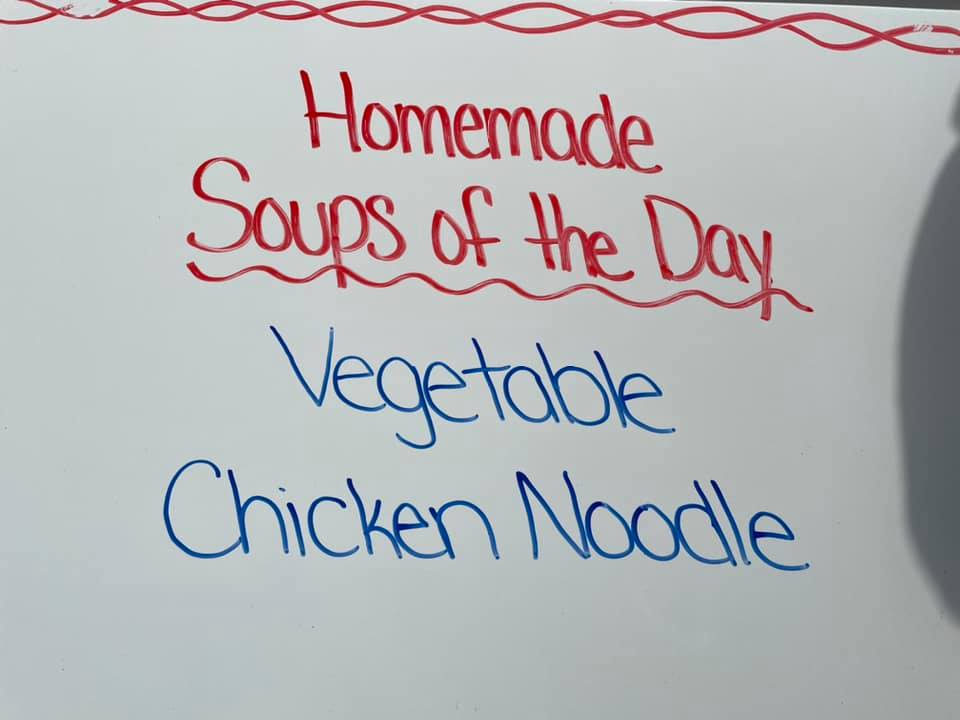 Homemade
Soups of the Day
Vegetable
Chicken Noodle